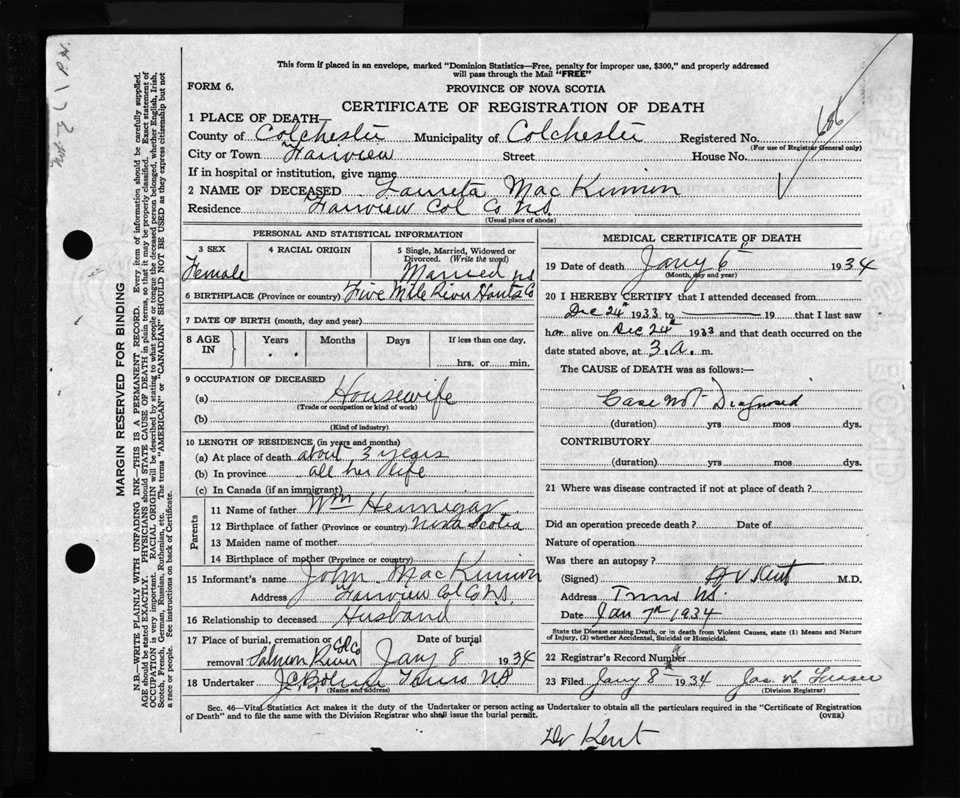 This form if placed in an envelope, marked "Dominion Statistics—Free, penalty for improper use, $300," and properly addressed
will pass through the Mail "FREE"
FORM 6.
PROVINCE OF NOVA SCOTIA
CERTIFICATE OF REGISTRATION OF DEATH
686
1 PLACE OF DEATH—
County of Colchester Municipality of Colchester Registered No.
(For use of Registrar General only)
City or Town Fairview Street House No.
If in hospital or institution, give name
2 NAME OF DECEASED Laureta MacKinnon
Residence Fairview Col Co N.S.
(Usual place of abode)
PERSONAL AND STATISTICAL INFORMATION
3 SEX 4 RACIAL ORIGIN 5 Single, Married, Widowed or Divorced. (Write the word)
Female Married
6 BIRTHPLACE (Province or country) Five Mile River Hants Co N.S.
7 DATE OF BIRTH (month, day and year)
8 AGE IN Years Months Days If less than one day,
hrs. or min.
9 OCCUPATION OF DECEASED
(a) Housewife
(Trade or occupation or kind of work)
(b)
(Kind of industry)
10 LENGTH OF RESIDENCE (in years and months)
(a) At place of death about 3 years
(b) In province all her life
(c) In Canada (if an immigrant)
Parents
11 Name of father Wm Hennigar
12 Birthplace of father (Province or country) Nova Scotia
13 Maiden name of mother
14 Birthplace of mother (Province or country)
15 Informant's name John MacKinnon
Address Fairview Col Co N.S.
16 Relationship to deceased Husband
17 Place of burial, cremation or removal Salmon River Col Co Date of burial Jany 8 1934
18 Undertaker Truro N.S.
(Name and address)
MEDICAL CERTIFICATE OF DEATH
19 Date of death Jany 6 1934
(Month, day and year)
20 I HEREBY CERTIFY that I attended deceased from
Dec 24th 1933 to 19 that I last saw
her alive on Dec 24th 1933 and that death occurred on the
date stated above, at 3.a.m.
The CAUSE of DEATH was as follows:—
Case not Diagnosed
(duration) yrs mos dys.
CONTRIBUTORY
(duration) yrs mos dys.
21 Where was disease contracted if not at place of death?
Did an operation precede death? Date of
Nature of operation
Was there an autopsy?
(Signed) H V Kent M.D.
Address Truro N.S.
Date Jan 7th 1934
State the Disease causing Death, or in death from Violent Causes, state (1) Means and Nature
of Injury, (2) whether Accidental, Suicidal or Homicidal.
22 Registrar's Record Number
23 Filed Jany 8th 1934 Jas
(Division Registrar)
Sec. 46—Vital Statistics Act makes it the duty of the Undertaker or person acting as Undertaker to obtain all the particulars required in the "Certificate of Registration
of Death" and to file the same with the Division Registrar who shall issue the burial permit. (OVER)
Dr Kent
MARGIN RESERVED FOR BINDING
N.B.—WRITE PLAINLY WITH UNFADING INK—THIS IS A PERMANENT RECORD. Every item of information should be carefully supplied.
AGE should be stated EXACTLY. PHYSICIANS should STATE CAUSE OF DEATH in plain terms, so that it may be properly classified. Exact statement of
OCCUPATION is very important. RACIAL ORIGIN will be described by stating to what people or tongue the deceased person belonged, whether English, Irish,
Scotch, French, German, Russian, Ruthenian, etc. The terms "AMERICAN" or "CANADIAN" SHOULD NOT BE USED as they express citizenship but not
a race or people. See instructions on back of Certificate.